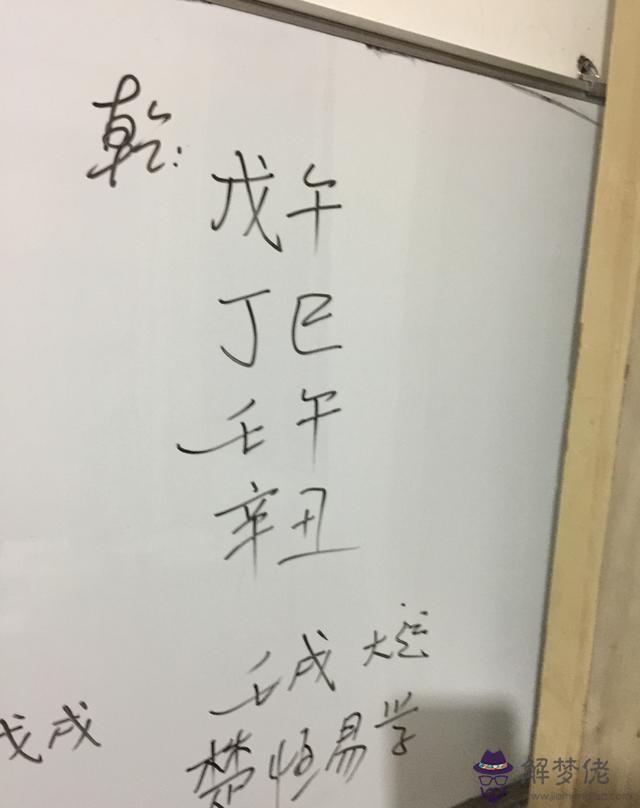 乾:
戊午
丁巳
壬午
辛丑
壬戌大运
戊戌
楚恒易学
解梦佬